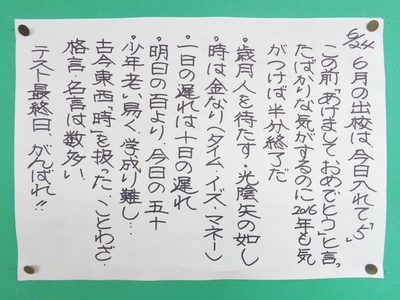 6/24
6月の出校は、今日入れて"5"
この前「あけましておめでとう」と言っ
たばかりな気がするのに2016年も気
がつけば半分終了だ
・歳月人を待たず・光陰矢の如し
・時は金なり(タイム・イズ・マネー)
・一日の遅れは十日の遅れ
・明日の百より、今日の五十
・少年老い易く、学成り難し…
古今東西「時」を扱った、ことわざ・
格言・名言は数多い、
テスト最終日、がんばれ!!